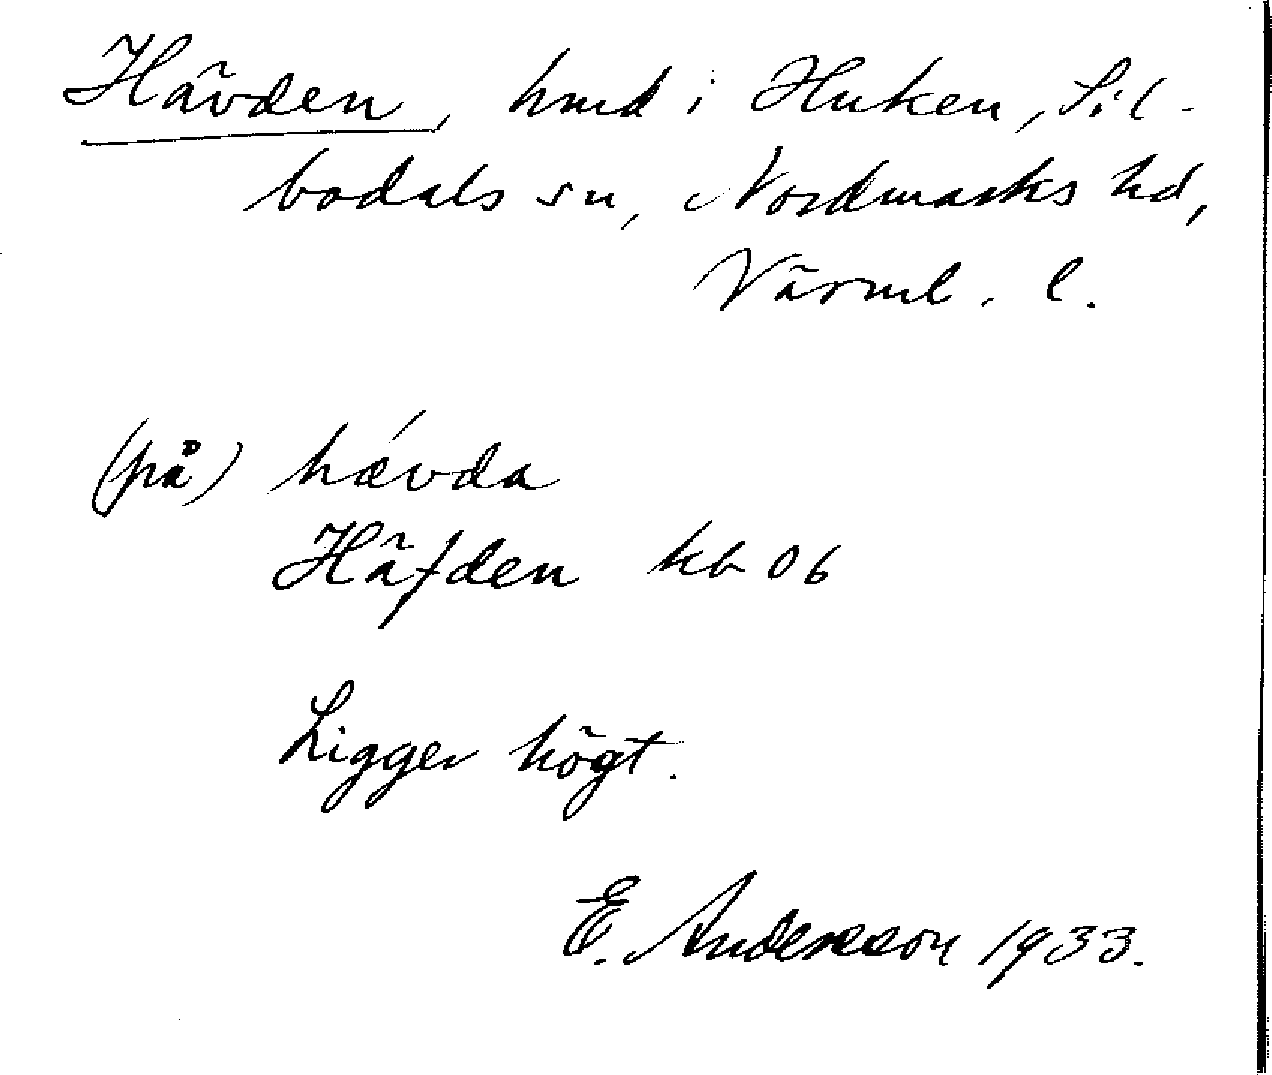 Hävden, hmd i Huken, Sil-
bodals sn, Nordmarks hd,
Värml. l.
(på) hǽvda
Häfden kb 06
Ligger högt.
E. Andersson 1933.